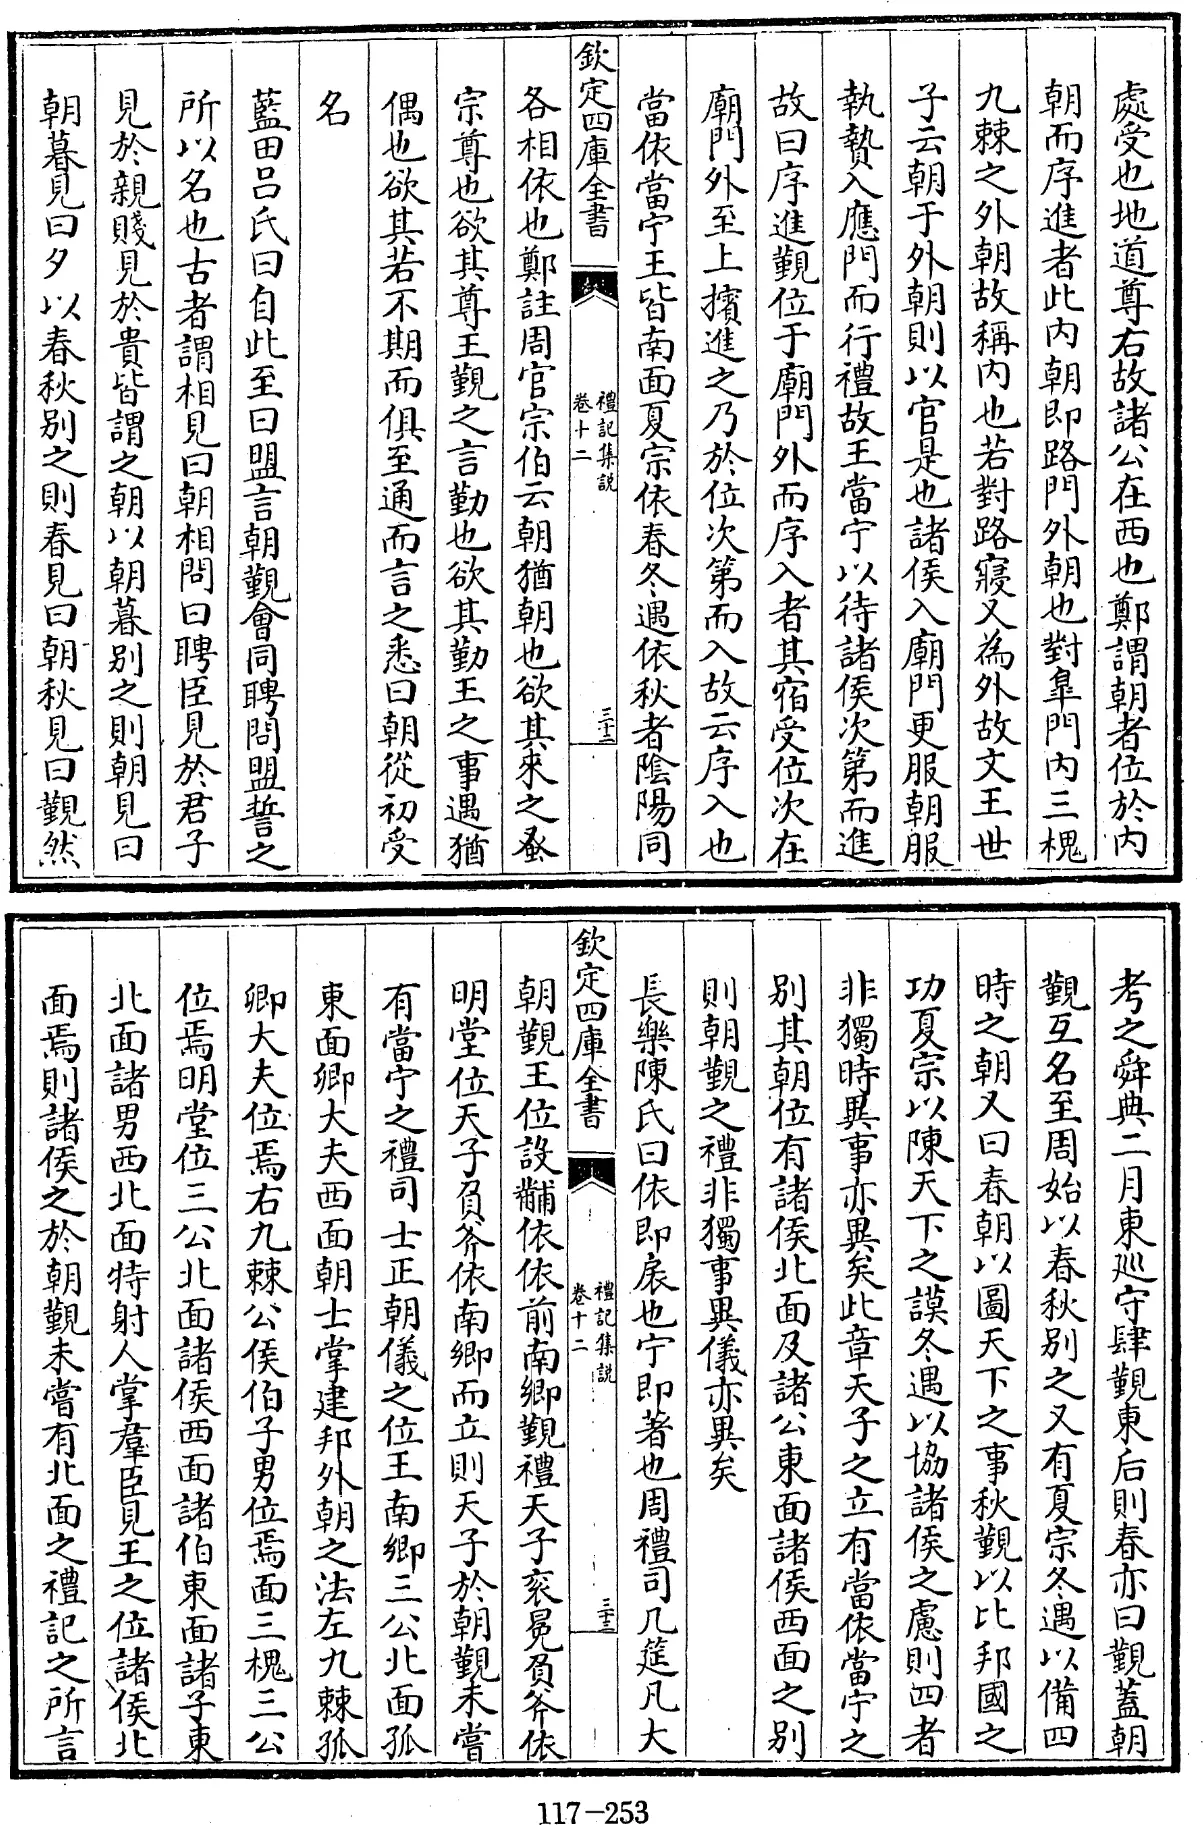 處受也地道尊右故諸公在西也鄭謂朝者位於内
朝而序進者此内朝即路門外朝也對臯門内三槐
九棘之外朝故稱内也若對路寢又為外故文王世
子云朝于外朝則以官是也諸侯入廟門更服朝服
執贄入應門而行禮故王當宁以待諸侯次第而進
故曰序進覲位于廟門外而序入者其宿受位次在
廟門外至上擯進之乃於位次第而入故云序入也
當依當宁王皆南面夏宗依春冬遇依秋者陰陽同
欽定四庫全書
禮記集説
卷十二
三十二
各相依也鄭註周官宗伯云朝猶朝也欲其來之蚤
宗尊也欲其尊王覲之言勤也欲其勤王之事遇猶
偶也欲其若不期而俱至通而言之悉曰朝從初受
名
藍田吕氏曰自此至曰盟言朝覲會同聘問盟誓之
所以名也古者謂相見曰朝相問曰聘臣見於君子
見於親賤見於貴皆謂之朝以朝暮别之則朝見曰
朝暮見曰夕以春秋别之則春見曰朝秋見曰覲然
考之舜典二月東廵守肆覲東后則春亦曰覲蓋朝
覲互名至周始以春秋别之又有夏宗冬遇以備四
時之朝又曰春朝以圖天下之事秋覲以比邦國之
功夏宗以陳天下之謨冬遇以協諸侯之慮則四者
非獨時異事亦異矣此章天子之立有當依當宁之
别其朝位有諸侯北面及諸公東面諸侯西面之别
則朝覲之禮非獨事異儀亦異矣
長樂陳氏曰依即扆也宁即著也周禮司几筵凡大
欽定四庫全書
禮記集説
卷十二
三十三
朝覲王位設黼依依前南鄉覲禮天子衮冕負斧依
明堂位天子負斧依南鄉而立則天子於朝覲未嘗
有當宁之禮司士正朝儀之位王南鄉三公北面孤
東面卿大夫西面朝士掌建邦外朝之法左九棘孤
卿大夫位焉右九棘公侯伯子男位焉面三槐三公
位焉明堂位三公北面諸侯西面諸伯東面諸子東
北面諸男西北面特射人掌羣臣見王之位諸侯北
面焉則諸侯之於朝覲未嘗有北面之禮記之所言
117-253